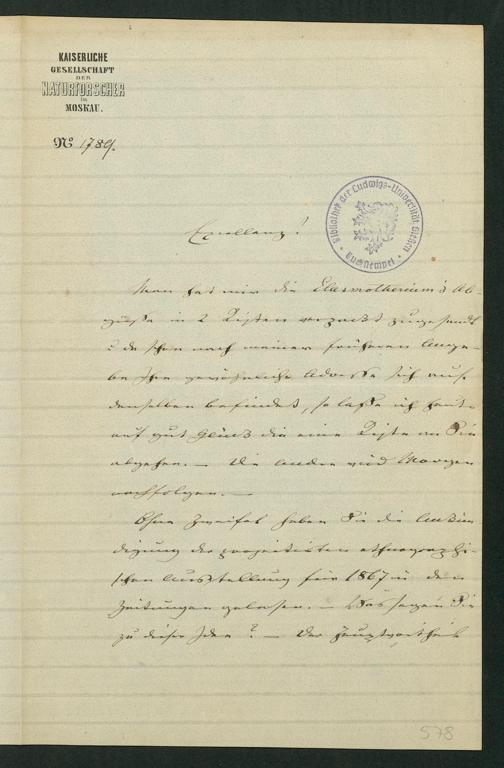 KAISERLICHE
GESELLSCHAFT
DER
NATURFORSCHER
in
MOSKAU.
No 1789.
Bibliothek der Ludwigs-Universität Gießen
Buchstempel
Excellenz!
Man hat mir die Elasmotherium's Ab-
güsse in 2 Kisten verpackt zugesandt
u da schon nach meiner früheren Anga-
be Ihre gewöhnliche Adresse sich auf
denselben befindet, so lasse ich heute
auf gut Glück die eine Kiste an Sie
abgehen. – Die andre wird Morgen
nachfolgen. –
Ohne Zweifel haben Sie die Ankün-
digung der projektirten ethnographi-
schen Ausstellung für 1867 in den
Zeitungen gelesen. – Was sagen Sie
zu dieser Idee? – Der Hauptvortheil
578